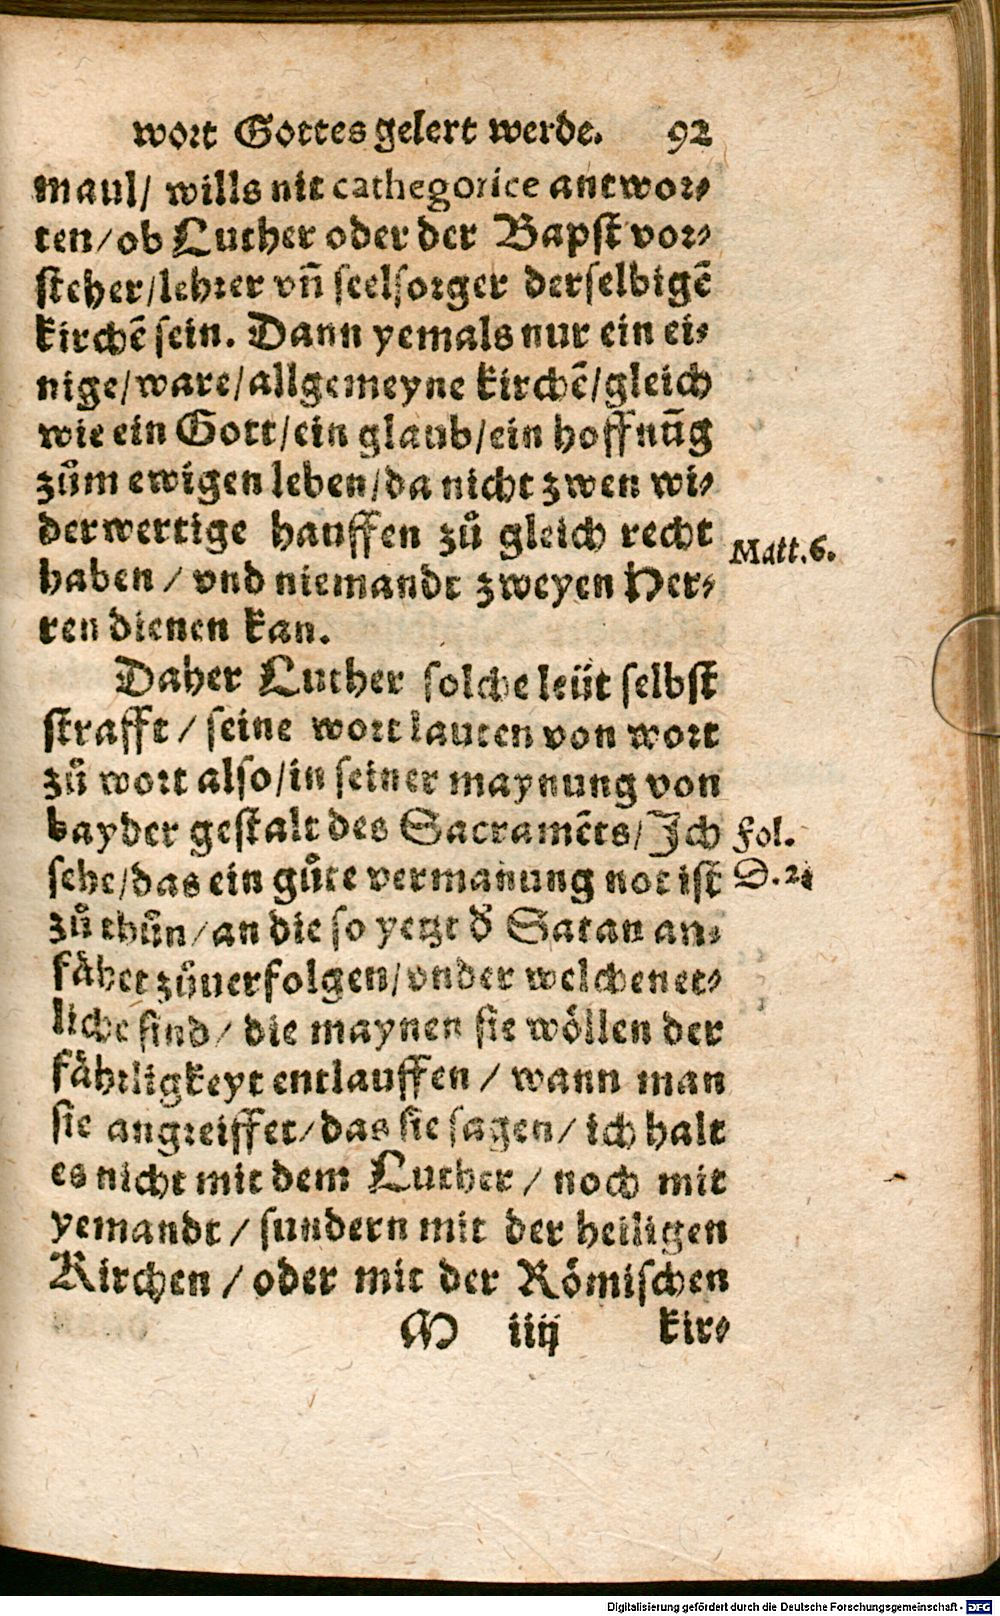 wort Gottes gelert werde. 92
maul/ wills nit cathegorice antwor⸗
ten/ob Luther oder der Bapst vor⸗
steher/lehrer vñ seelsorger derselbigē
kirchē sein. Dann yemals nur ein ei⸗
nige/ware/allgemeyne kirchē/gleich
wie ein Gott/ein glaub/ein hoffnūg
zům ewigen leben/da nicht zwen wi⸗
derwertige hauffen zů gleich recht
haben / vnd niemandt zweyen Her⸗
ren dienen kan.
Matt.6.
Daher Luther solche leüt selbst
strafft / seine wort lauten von wort
zů wort also/in seiner maynung von
bayder gestalt des Sacramēts/ Ich
sehe/das ein gůte vermanung not ist
zů thůn/an die so yetzt d̄ Satan an⸗
fähet zůuerfolgen/vnder welchen et⸗
liche sind/ die maynen sie wöllen der
fährligkeyt entlauffen / wann man
sie angreiffet/das sie sagen/ ich halt
es nicht mit dem Luther / noch mit
yemandt / sundern mit der heiligen
Kirchen / oder mit der Römischen
Fol.
D.2
M iiij kir⸗
Digitalisierung gefördert durch die Deutsche Forschungsgemeinschaft - DFG